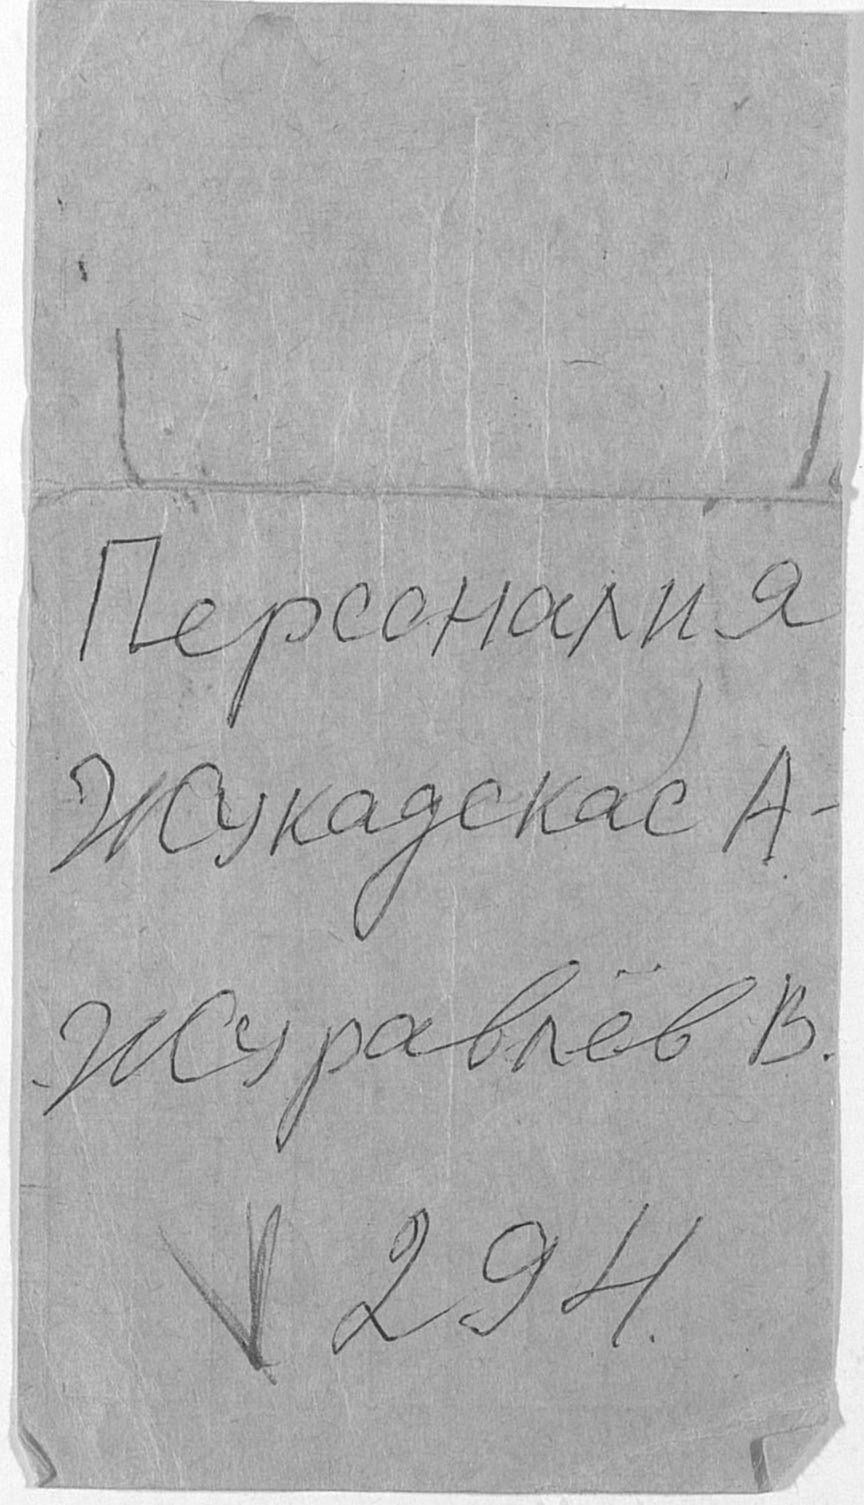 Персоналия
Жукадскас А.
Журавлёв В.
V 294.